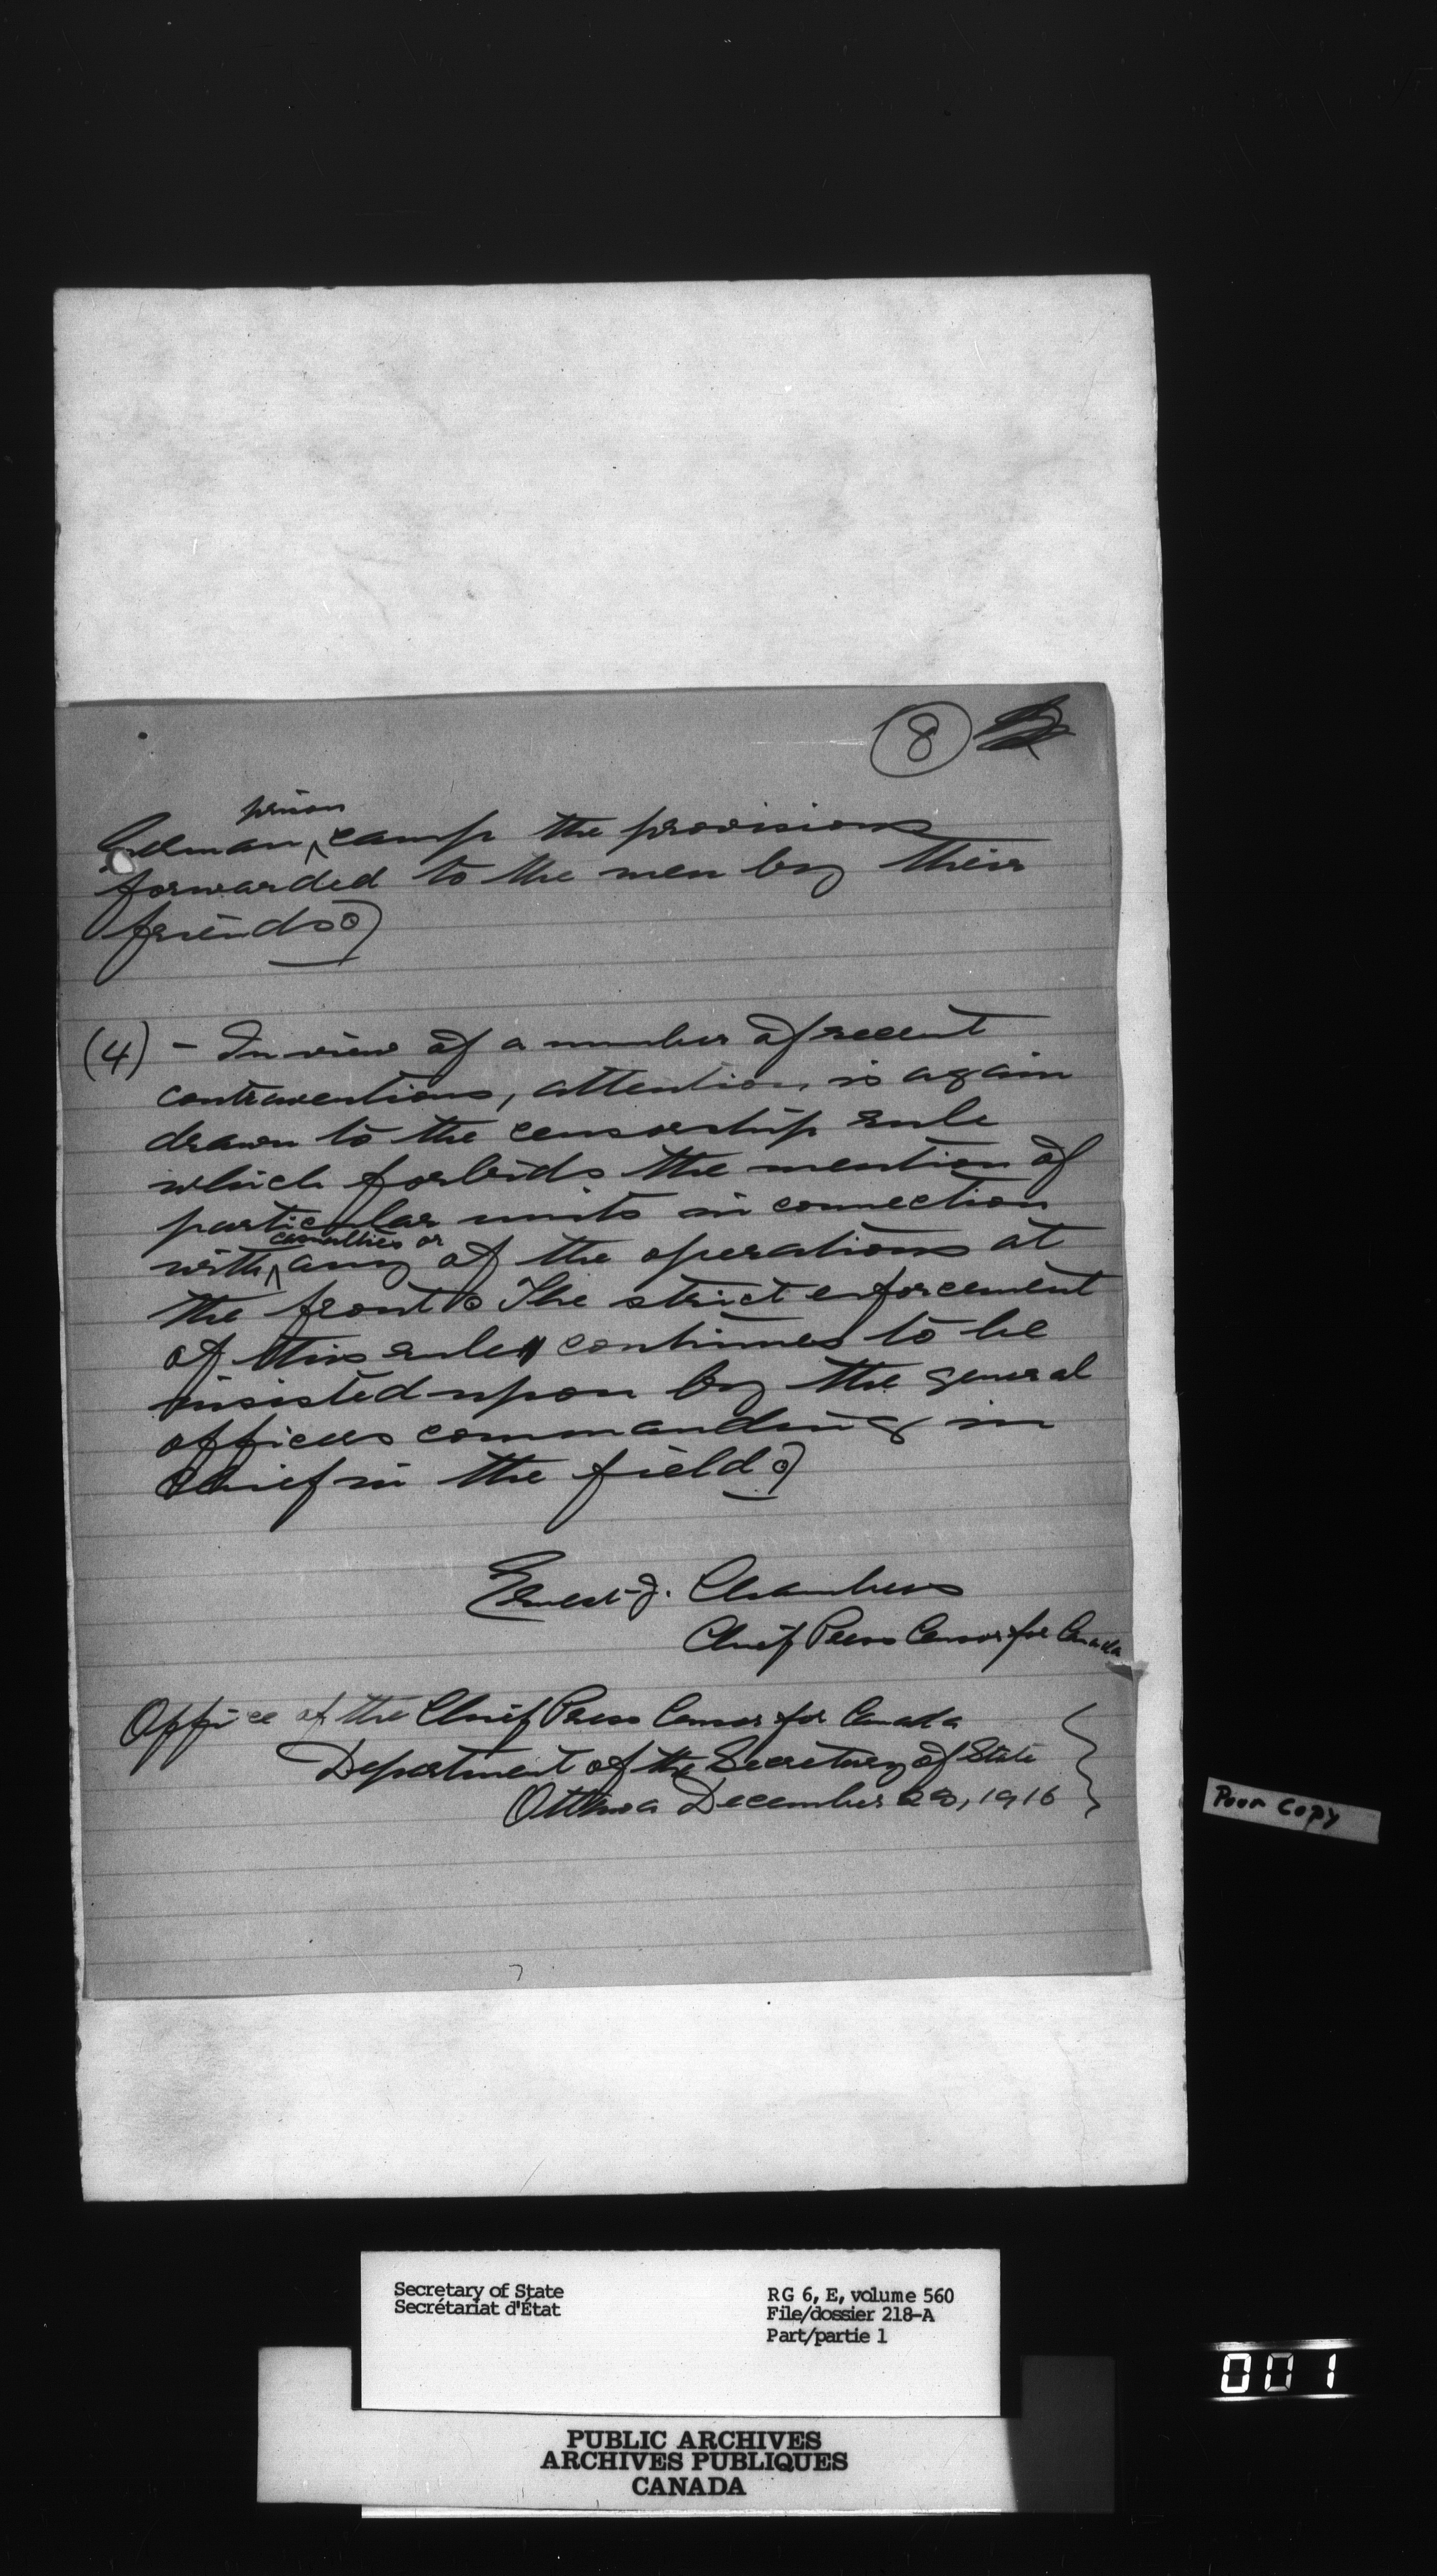 8
prison
German ^ camp the provisions
forwarded to the men by their
friends.
(4) - In view of a number of recent
contraventions, attention is again
drawn to the censorship rule
which forbids the mention of
particular units in connection
casualties or
with ^ any of the operations at
the front. The strict enforcement
of this rule continues to be
insisted upon by the general
officers commanding in
chief in the field.
Ernest J. Chambers
Chief Press Censor for Canada
Office of the Chief Press Censor for Canada
Department of the Secretary of State
Ottawa December 28, 1916
Poor Copy
Secretary of State
Secrétariat d'État
RG 6, E, volume 560
File/dossier 218-A
Part/partie 1
001
PUBLIC ARCHIVES
ARCHIVES PUBLIQUES
CANADA